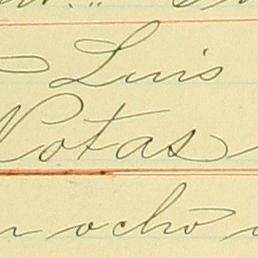 Luis
Notas
n ocho